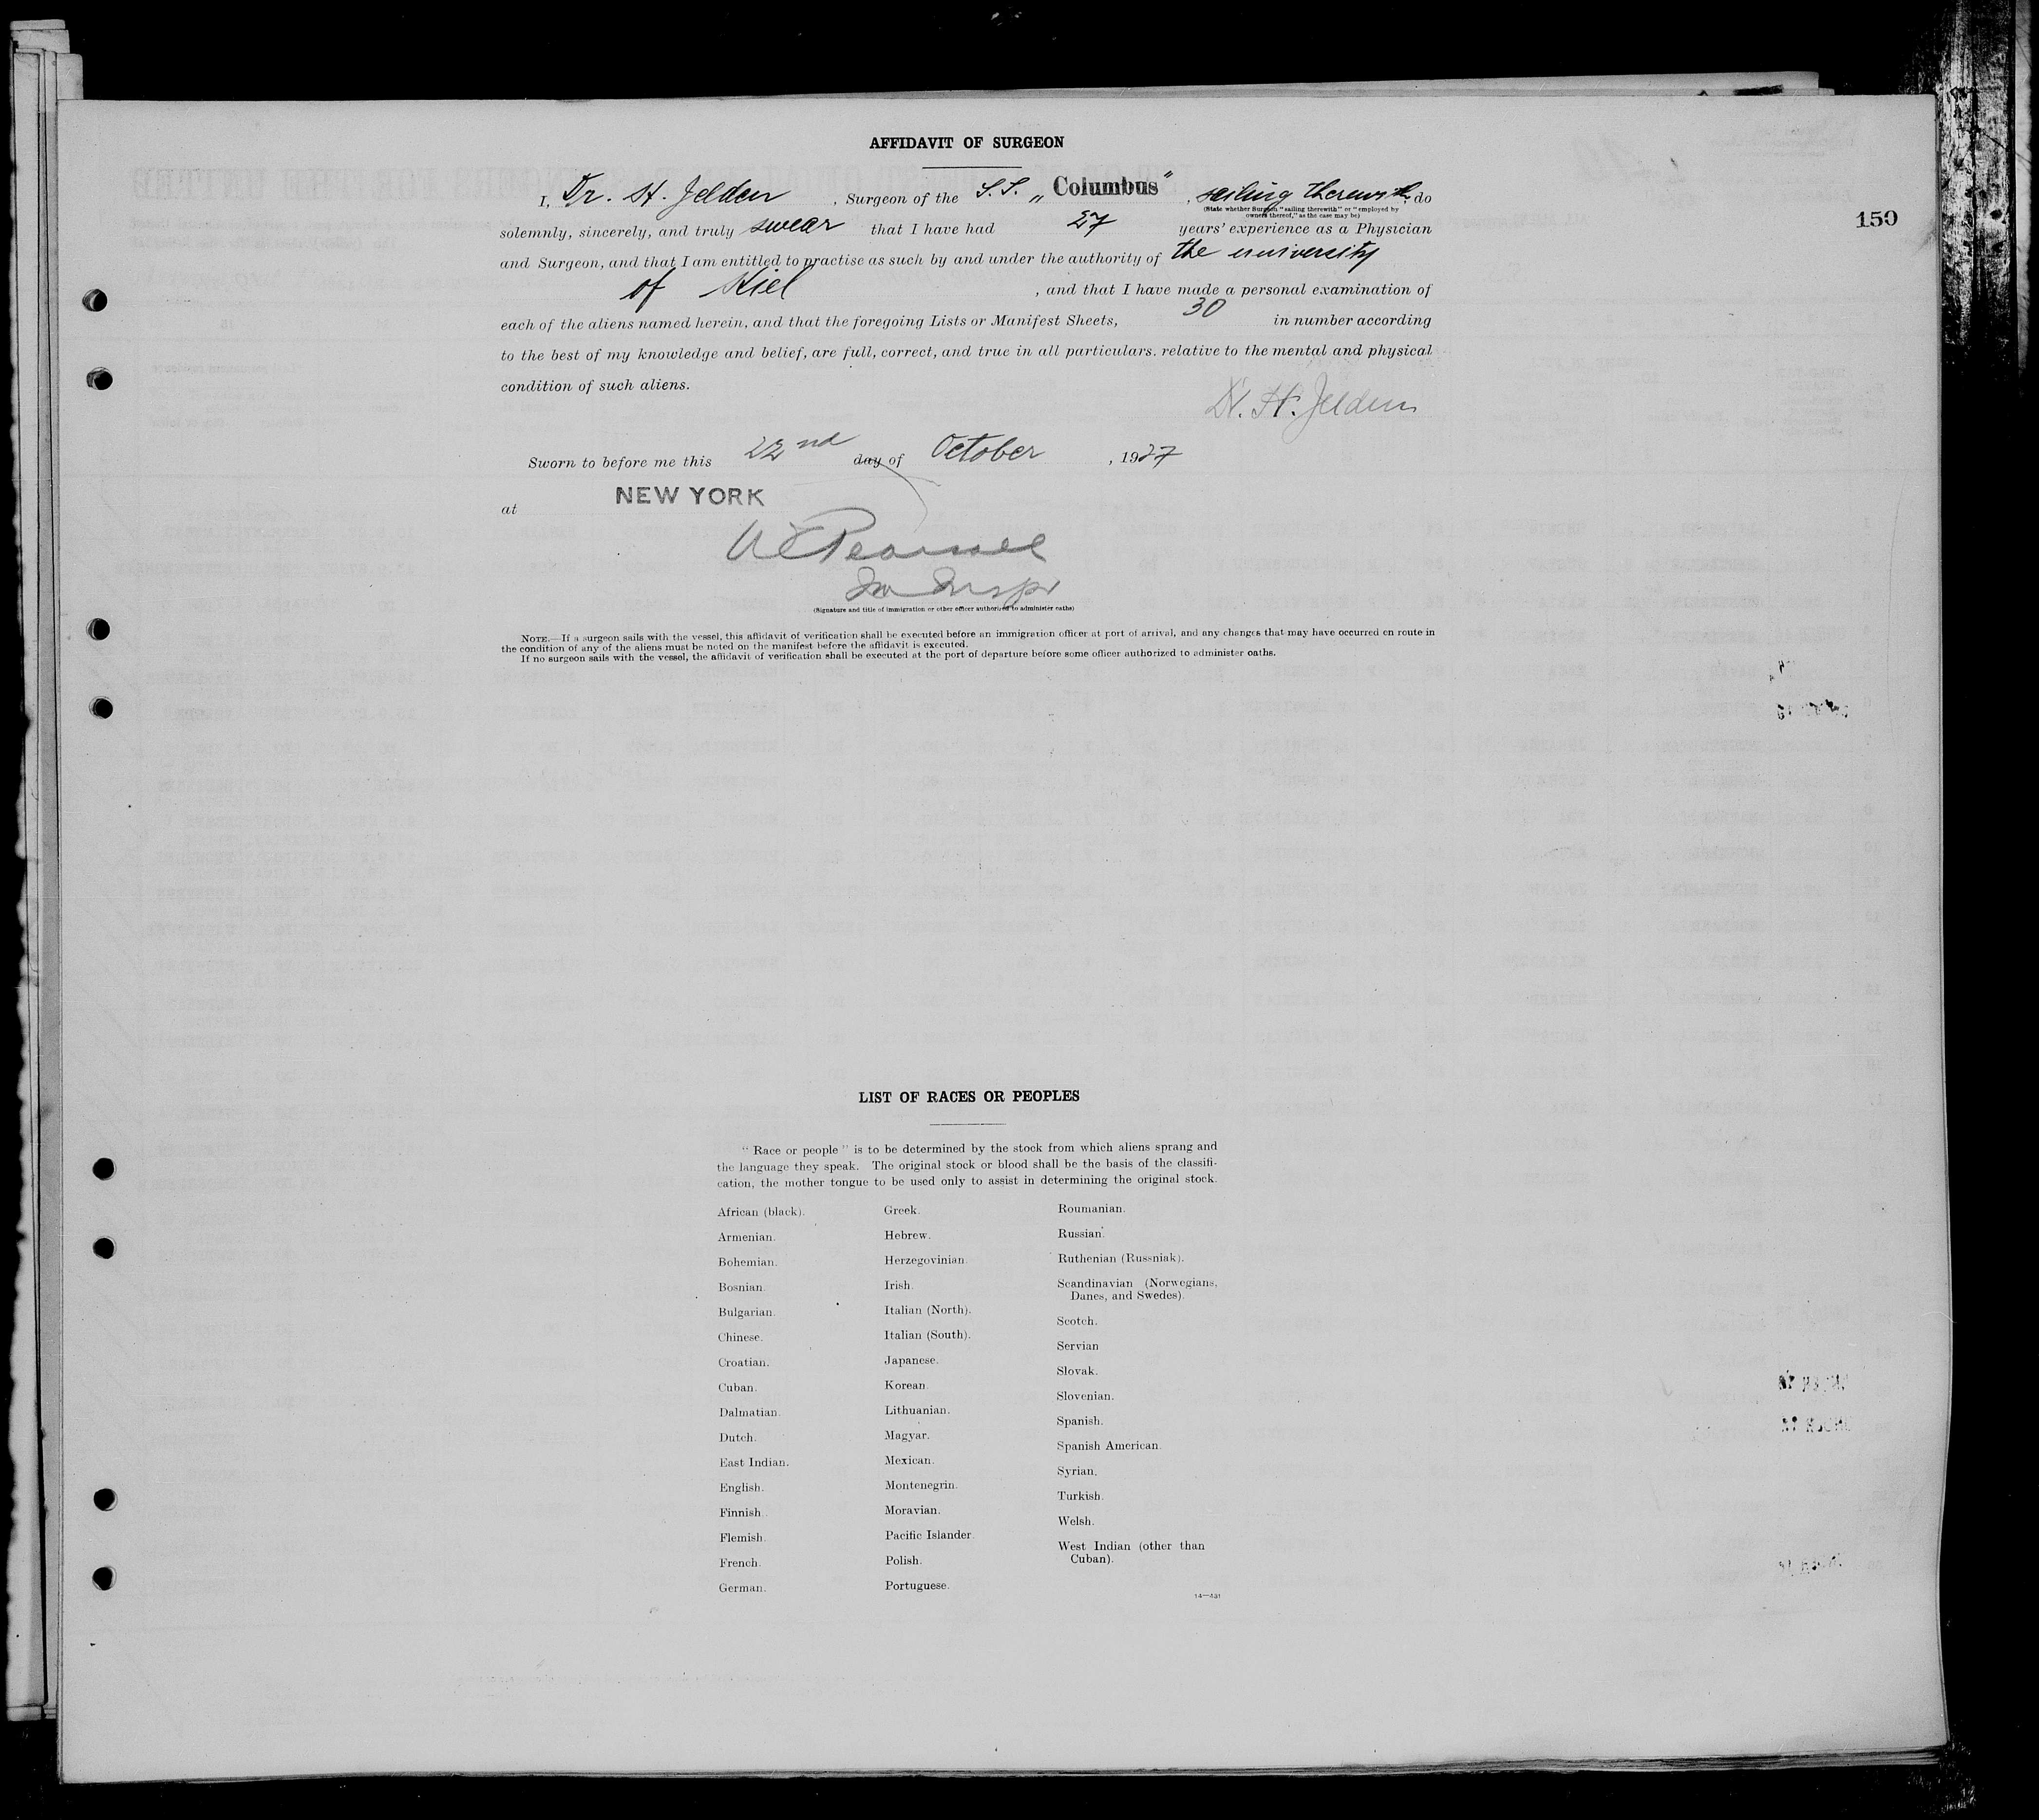 AFFIDAVIT OF SURGEON
I, Dr. H. Jelden, Surgeon of the S.S. „Columbus", sailing therewith, do
(State whether Surgeon "sailing therewith" or "employed by
owners thereof," as the case may be)
150
solemnly, sincerely, and truly swear that I have had 27 years' experience as a Physician
and Surgeon, and that I am entitled to practise as such by and under the authority of the university
of Kiel, and that I have made a personal examination of
each of the aliens named herein, and that the foregoing Lists or Manifest Sheets, 30 in number according
to the best of my knowledge and belief, are full, correct, and true in all particulars. relative to the mental and physical
condition of such aliens.
Dr. H. Jelden
Sworn to before me this 22nd day of October, 1927
at NEW YORK
(Signature and title of immigration or other officer authorized to administer oaths)
NOTE.—If a surgeon sails with the vessel, this affidavit of verification shall be executed before an immigration officer at port of arrival, and any changes that may have occurred en route in
the condition of any of the aliens must be noted on the manifest before the affidavit is executed.
If no surgeon sails with the vessel, the affidavit of verification shall be executed at the port of departure before some officer authorized to administer oaths.
LIST OF RACES OR PEOPLES
"Race or people" is to be determined by the stock from which aliens sprang and
the language they speak. The original stock or blood shall be the basis of the classifi-
cation, the mother tongue to be used only to assist in determining the original stock.
African (black).
Armenian.
Bohemian.
Bosnian.
Bulgarian.
Chinese.
Croatian.
Cuban.
Dalmatian.
Dutch.
East Indian.
English.
Finnish.
Flemish.
French.
German.
Greek.
Hebrew.
Herzegovinian.
Irish.
Italian (North).
Italian (South).
Japanese.
Korean.
Lithuanian.
Magyar.
Mexican.
Montenegrin.
Moravian.
Pacific Islander.
Polish.
Portuguese.
Roumanian.
Russian.
Ruthenian (Russniak).
Scandinavian (Norwegians,
Danes, and Swedes).
Scotch.
Servian
Slovak.
Slovenian.
Spanish.
Spanish American.
Syrian.
Turkish.
Welsh.
West Indian (other than
Cuban).
14—431